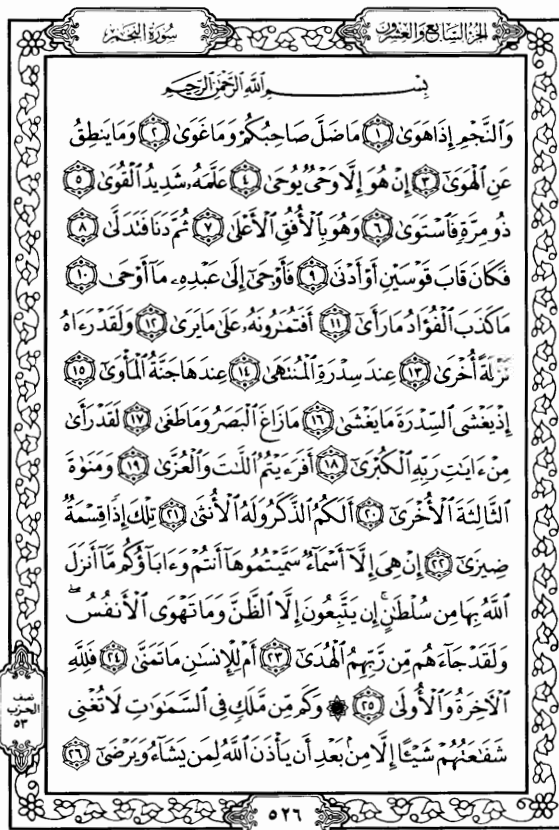 سُورَةُ النَّجْمِ
الجُزْءُ السَّابِعُ وَالعِشْرُونَ
بِسْمِ اللَّهِ الرَّحْمَٰنِ الرَّحِيمِ
وَالنَّجْمِ إِذَا هَوَىٰ ١ مَا ضَلَّ صَاحِبُكُمْ وَمَا غَوَىٰ ٢ وَمَا يَنطِقُ
عَنِ الْهَوَىٰٓ ٣ إِنْ هُوَ إِلَّا وَحْىٌ يُوحَىٰ ٤ عَلَّمَهُۥ شَدِيدُ الْقُوَىٰ ٥
ذُو مِرَّةٍ فَاسْتَوَىٰ ٦ وَهُوَ بِالْأُفُقِ الْأَعْلَىٰ ٧ ثُمَّ دَنَا فَتَدَلَّىٰ ٨
فَكَانَ قَابَ قَوْسَيْنِ أَوْ أَدْنَىٰ ٩ فَأَوْحَىٰٓ إِلَىٰ عَبْدِهِۦ مَآ أَوْحَىٰ ١٠
مَا كَذَبَ الْفُؤَادُ مَا رَأَىٰٓ ١١ أَفَتُمَٰرُونَهُۥ عَلَىٰ مَا يَرَىٰ ١٢ وَلَقَدْ رَءَاهُ
نَزْلَةً أُخْرَىٰ ١٣ عِندَ سِدْرَةِ الْمُنتَهَىٰ ١٤ عِندَهَا جَنَّةُ الْمَأْوَىٰٓ ١٥
إِذْ يَغْشَى السِّدْرَةَ مَا يَغْشَىٰ ١٦ مَا زَاغَ الْبَصَرُ وَمَا طَغَىٰ ١٧ لَقَدْ رَأَىٰ
مِنْ ءَايَٰتِ رَبِّهِ الْكُبْرَىٰٓ ١٨ أَفَرَءَيْتُمُ اللَّٰتَ وَالْعُزَّىٰ ١٩ وَمَنَوٰةَ
الثَّالِثَةَ الْأُخْرَىٰٓ ٢٠ أَلَكُمُ الذَّكَرُ وَلَهُ الْأُنثَىٰ ٢١ تِلْكَ إِذًا قِسْمَةٌ
ضِيزَىٰٓ ٢٢ إِنْ هِىَ إِلَّآ أَسْمَآءٌ سَمَّيْتُمُوهَآ أَنتُمْ وَءَابَآؤُكُم مَّآ أَنزَلَ
اللَّهُ بِهَا مِن سُلْطَٰنٍ ۚ إِن يَتَّبِعُونَ إِلَّا الظَّنَّ وَمَا تَهْوَى الْأَنفُسُ ۖ
وَلَقَدْ جَآءَهُم مِّن رَّبِّهِمُ الْهُدَىٰٓ ٢٣ أَمْ لِلْإِنسَٰنِ مَا تَمَنَّىٰ ٢٤ فَلِلَّهِ
الْءَاخِرَةُ وَالْأُولَىٰ ٢٥ ۞ وَكَم مِّن مَّلَكٍ فِى السَّمَٰوَٰتِ لَا تُغْنِى
شَفَٰعَتُهُمْ شَيْـًٔا إِلَّا مِنۢ بَعْدِ أَن يَأْذَنَ اللَّهُ لِمَن يَشَآءُ وَيَرْضَىٰٓ ٢٦
نصف
الحزب
٥٣
٥٢٦